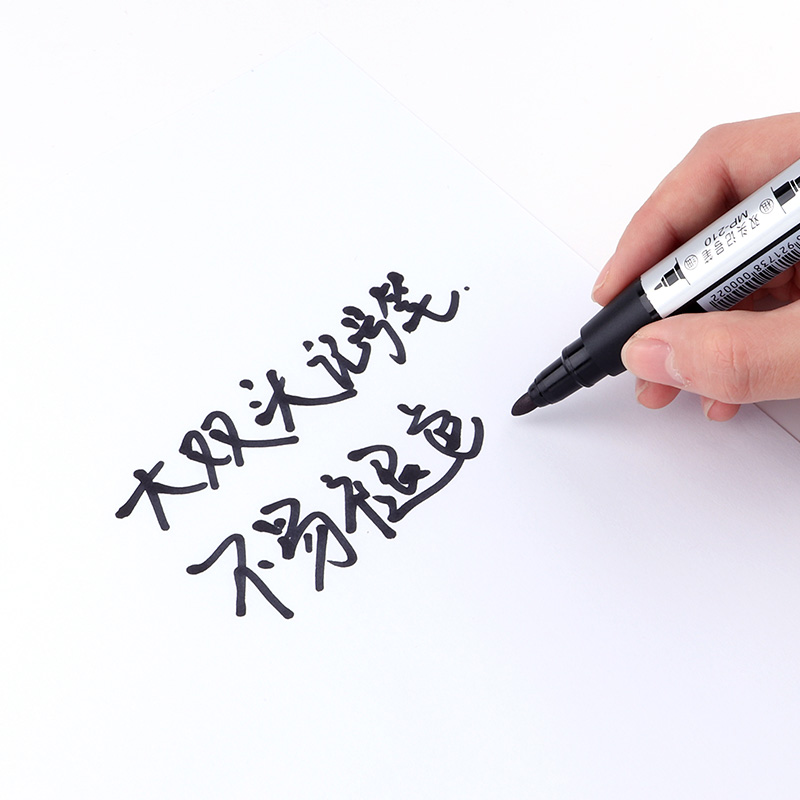 大双头记号笔.
不易褪色
双头记号笔
MP-210
921738 000022